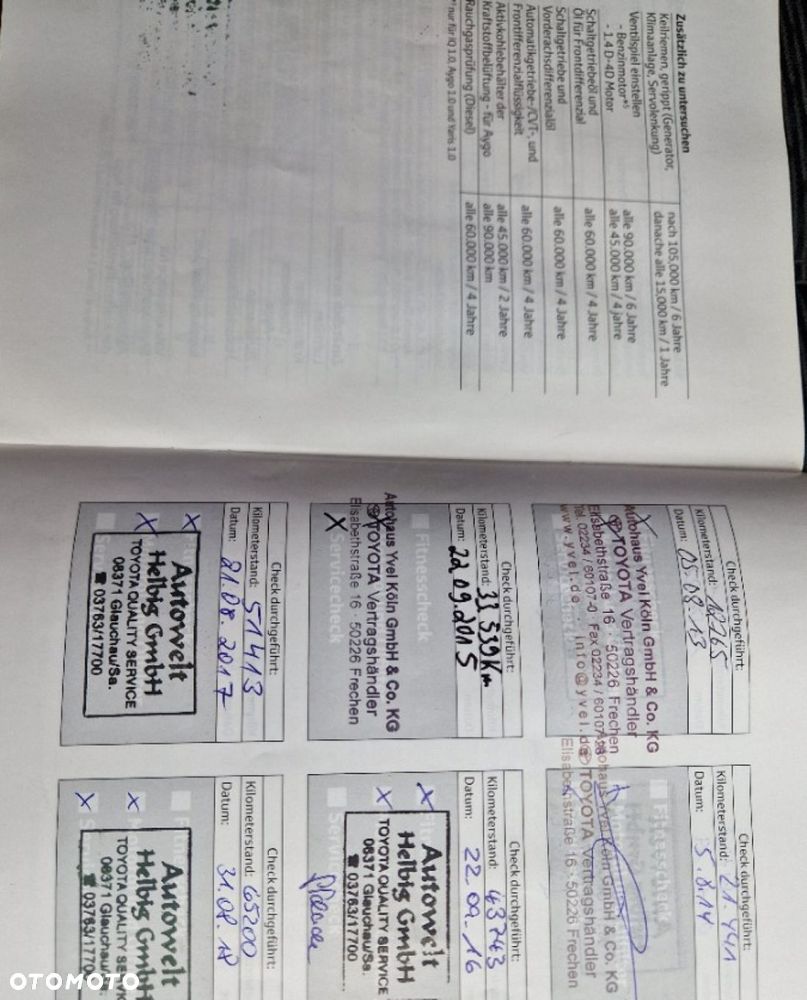 Zusätzlich zu untersuchen
Keilriemen, gerippt (Generator,
Klimaanlage, Servolenkung)
nach 105.000 km / 6 Jahre
danache alle 15.000 km / 1 Jahre
Ventilspiel einstellen
- Benzinmotor*⁵
- 1.4 D-4D Motor
alle 90.000 km / 6 Jahre
alle 45.000 km / 4 Jahre
Schaltgetriebeöl und
Öl für Frontdifferenzial
alle 60.000 km / 4 Jahre
Schaltgetriebe und
Vorderachsdifferenzialöl
alle 60.000 km / 4 Jahre
Automatikgetriebe-/CVT-, und
Frontdifferenzialflüssigkeit
alle 60.000 km / 4 Jahre
Aktivkohlebehälter der
Kraftstoffbelüftung - für Aygo
alle 45.000 km / 2 Jahre
alle 90.000 km
Rauchgasprüfung (Diesel)
alle 60.000 km / 4 Jahre
nur für iQ 1.0, Aygo 1.0 und Yaris 1.0
Check durchgeführt:
Kilometerstand: 18265
Datum: 05.08.13
Autohaus Yvel Köln GmbH & Co. KG
TOYOTA Vertragshändler
Elisabethstraße 16 · 50226 Frechen
Tel. 02234 / 60107-0 Fax 02234 / 60107
www.yvel.de info@yvel.de
Check durchgeführt:
Kilometerstand: 21.441
Datum: 5.8.14
Fitnesscheck
Autohaus Yvel Köln GmbH & Co. KG
TOYOTA Vertragshändler
Elisabethstraße 16 · 50226 Frechen
Check durchgeführt:
Kilometerstand: 33 539 Km
Datum: 22.09.2015
Fitnesscheck
Autohaus Yvel Köln GmbH & Co. KG
TOYOTA Vertragshändler
Elisabethstraße 16 · 50226 Frechen
X Servicecheck
Check durchgeführt:
Kilometerstand: 43743
Datum: 22.09.16
X
X
Autowelt
Helbig GmbH
TOYOTA QUALITY SERVICE
08371 Glauchau/Sa.
☎ 03763/17700
Check durchgeführt:
Kilometerstand: 51413
Datum: 21.08.2017
X
X
Autowelt
Helbig GmbH
TOYOTA QUALITY SERVICE
08371 Glauchau/Sa.
☎ 03763/17700
Check durchgeführt:
Kilometerstand: 65200
Datum: 31.08.18
X
X
Autowelt
Helbig GmbH
TOYOTA QUALITY
08371 Glauchau
☎ 03763/1770
OTOMOTO